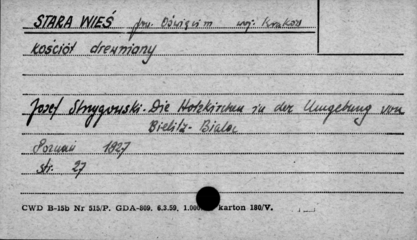 STARA WIEŚ pow. Oświęcim woj. Kraków
kościół drewniany
Josef Strzygowski. Die Holzkirchen in der Umgebung von
Bielitz-Biala
Poznań 1927
str. 27
CWD B-15b Nr 515/P. GDA-869. 6.3.59, 1.000 karton 180/V.